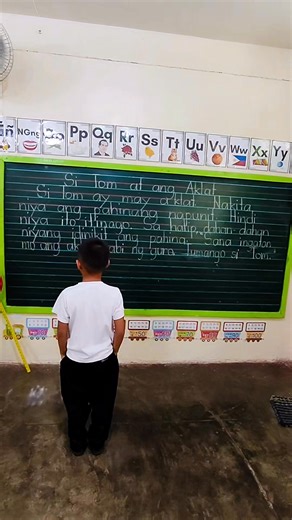 Ññ NGng Oo Pp Qq Rr Ss Tt Uu Vv Ww Xx Yy
Si Tom at ang Aklat
Si Tom ay may aklat. Nakita
niya ang pahinang napunit. Hindi
niya ito itinago. Sa halip, dahan-dahan
niyang idinikit ang pahina. "Sana ingatan
mo ang aklat," sabi ng guro. Tumango si Tom.